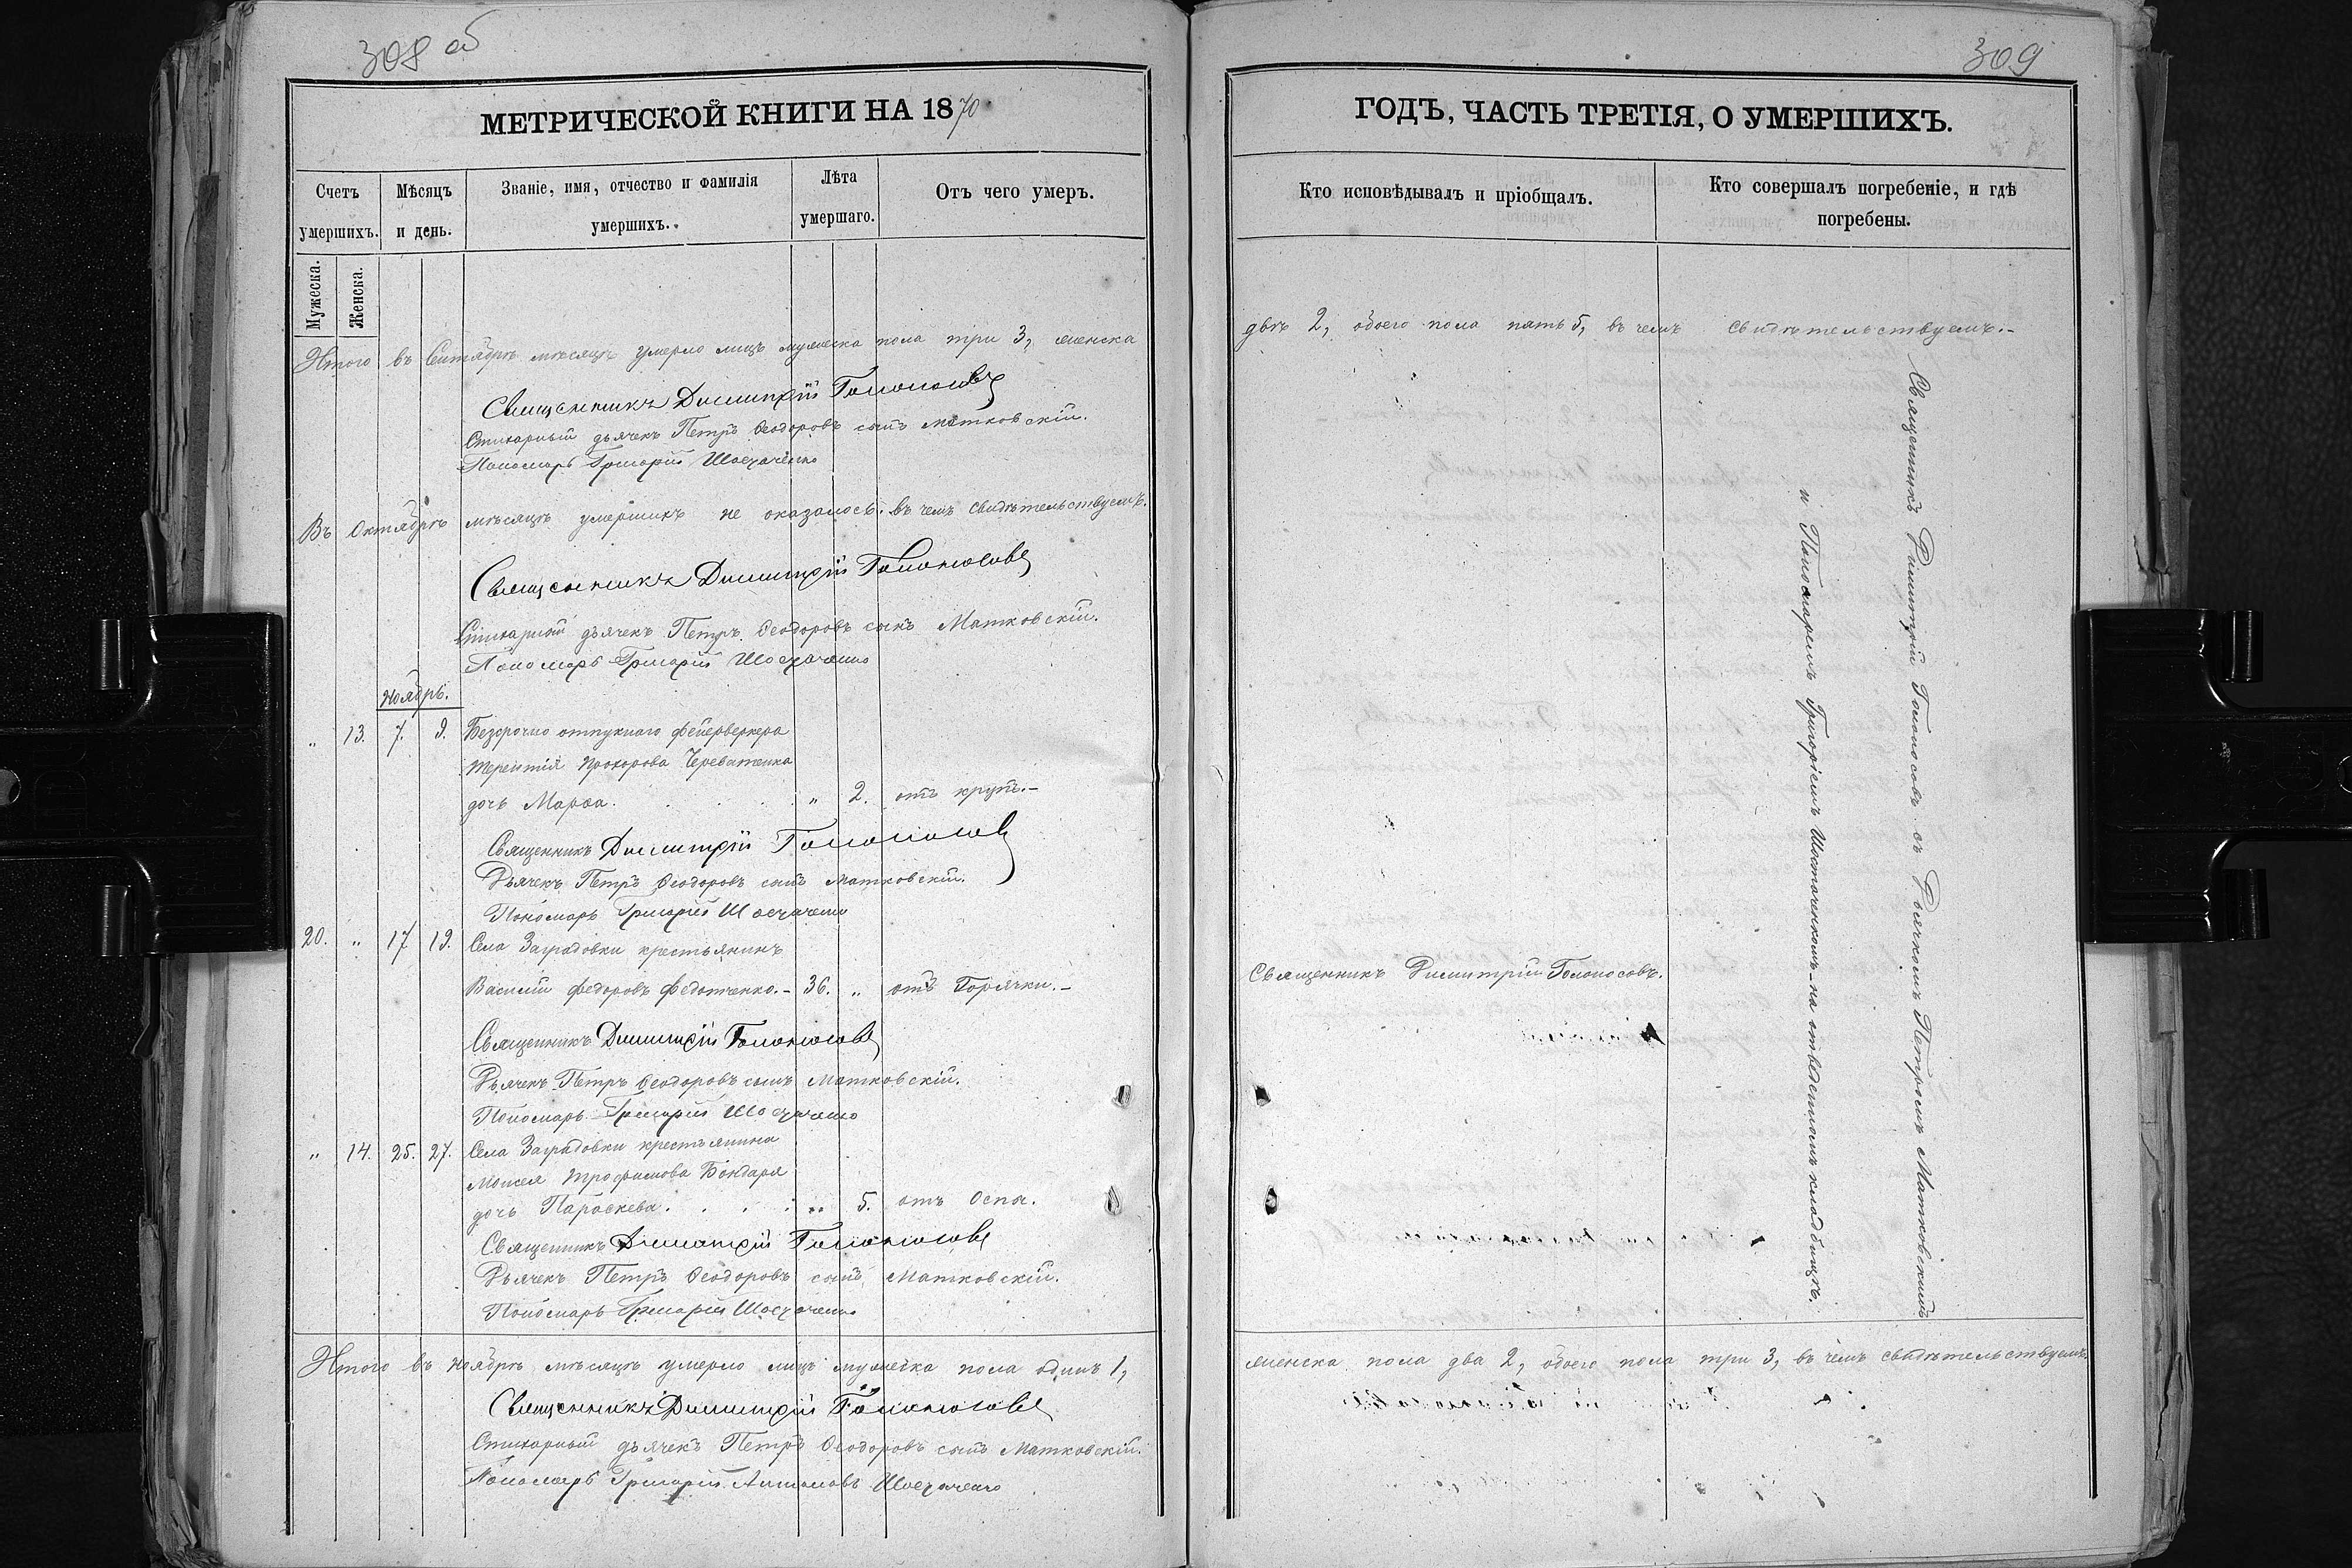 308 об
МЕТРИЧЕСКОЙ КНИГИ НА 1870
Счетъ умершихъ.
Мѣсяцъ и день.
Званіе, имя, отчество и фамилія умершихъ.
Лѣта умершаго.
Отъ чего умеръ.
Мужеска.
Женска.
Итого въ Сентябрѣ мѣсяцѣ умерло лицъ мужеска пола три 3, женска
Священникъ Димитрій Голоносовъ
Стихарный дьячекъ Петръ Ѳеодоровъ сынъ Матковскій.
Пономарь Григорій
Въ Октябрѣ мѣсяцѣ умершихъ не оказалось. въ чемъ свидѣтельствуемъ.
Священникъ Димитрій Голоносовъ
Стихарный дьячекъ Петръ Ѳеодоровъ сынъ Матковскій.
Пономарь Григорій
Ноябрь.
" 13. 7. 9. Безсрочно отпускнаго фейерверкера
Терентія Прохорова Череватенка
дочь Марѳа. " 2. отъ крупъ.-
Священникъ Димитрій Голоносовъ
Дьячекъ Петръ Ѳеодоровъ сынъ Матковскій.
Пономарь Григорій
20. " 17 19. Села Заградовки крестьянинъ
Василій Федоровъ Федотченко.- 36. " отъ Горячки.-
Священникъ Димитрій Голоносовъ
Дьячекъ Петръ Ѳеодоровъ сынъ Матковскій.
Пономарь Григорій
" 14. 25. 27. Села Заградовки крестьянина
Моисея Трофимова Бондаря
дочь Параскева. " 5. отъ Оспы.
Священникъ Димитрій Голоносовъ
Дьячекъ Петръ Ѳеодоровъ сынъ Матковскій.
Пономарь Григорій
Итого въ Ноябрѣ мѣсяцѣ умерло лицъ мужеска пола одинъ 1,
Священникъ Димитрій Голоносовъ
Стихарный дьячекъ Петръ Ѳеодоровъ сынъ Матковскій.
Пономарь Григорій Антоновъ
309
ГОДЪ, ЧАСТЬ ТРЕТІЯ, О УМЕРШИХЪ.
Кто исповѣдывалъ и пріобщалъ.
Кто совершалъ погребеніе, и гдѣ погребены.
двѣ 2, обоего пола пять 5, въ чемъ свидѣтельствуемъ.-
Священникъ Димитрій Голоносовъ съ Дьячкомъ Петромъ Матковскимъ
и Пономаремъ Григоріемъ Шостаченкомъ на отведенномъ кладбищѣ.
Священникъ Димитрій Голоносовъ.
женска пола два 2, обоего пола три 3, въ чемъ свидѣтельствуемъ.